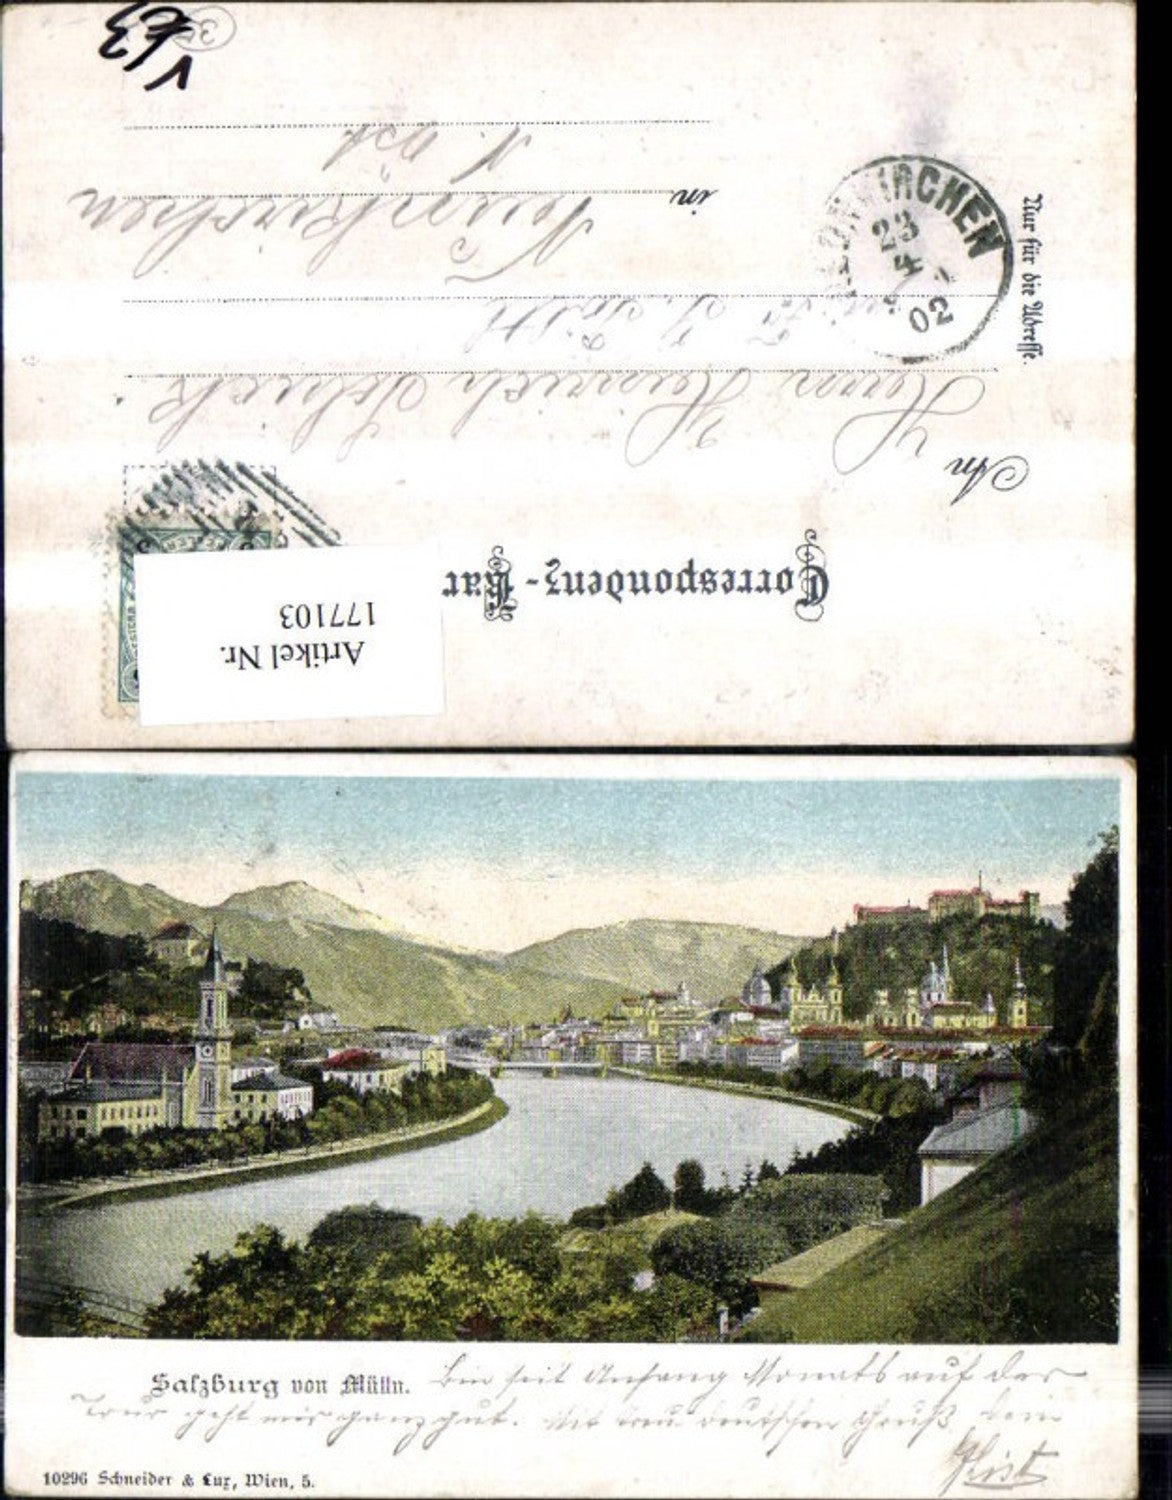 V €3
35
Correspondenz-Kar
Artikel Nr.
177103
An
Herrn Heinrich
in Neunkirchen
N. Öst
Nur für die Adresse.
NEUNKIRCHEN
23
4
02
Salzburg von Mülln. Bin seit Anfang Monats auf der
Tour geht mir ganz gut. Mit treu deutschem Gruß dein
10296 Schneider & Lux, Wien, 5.